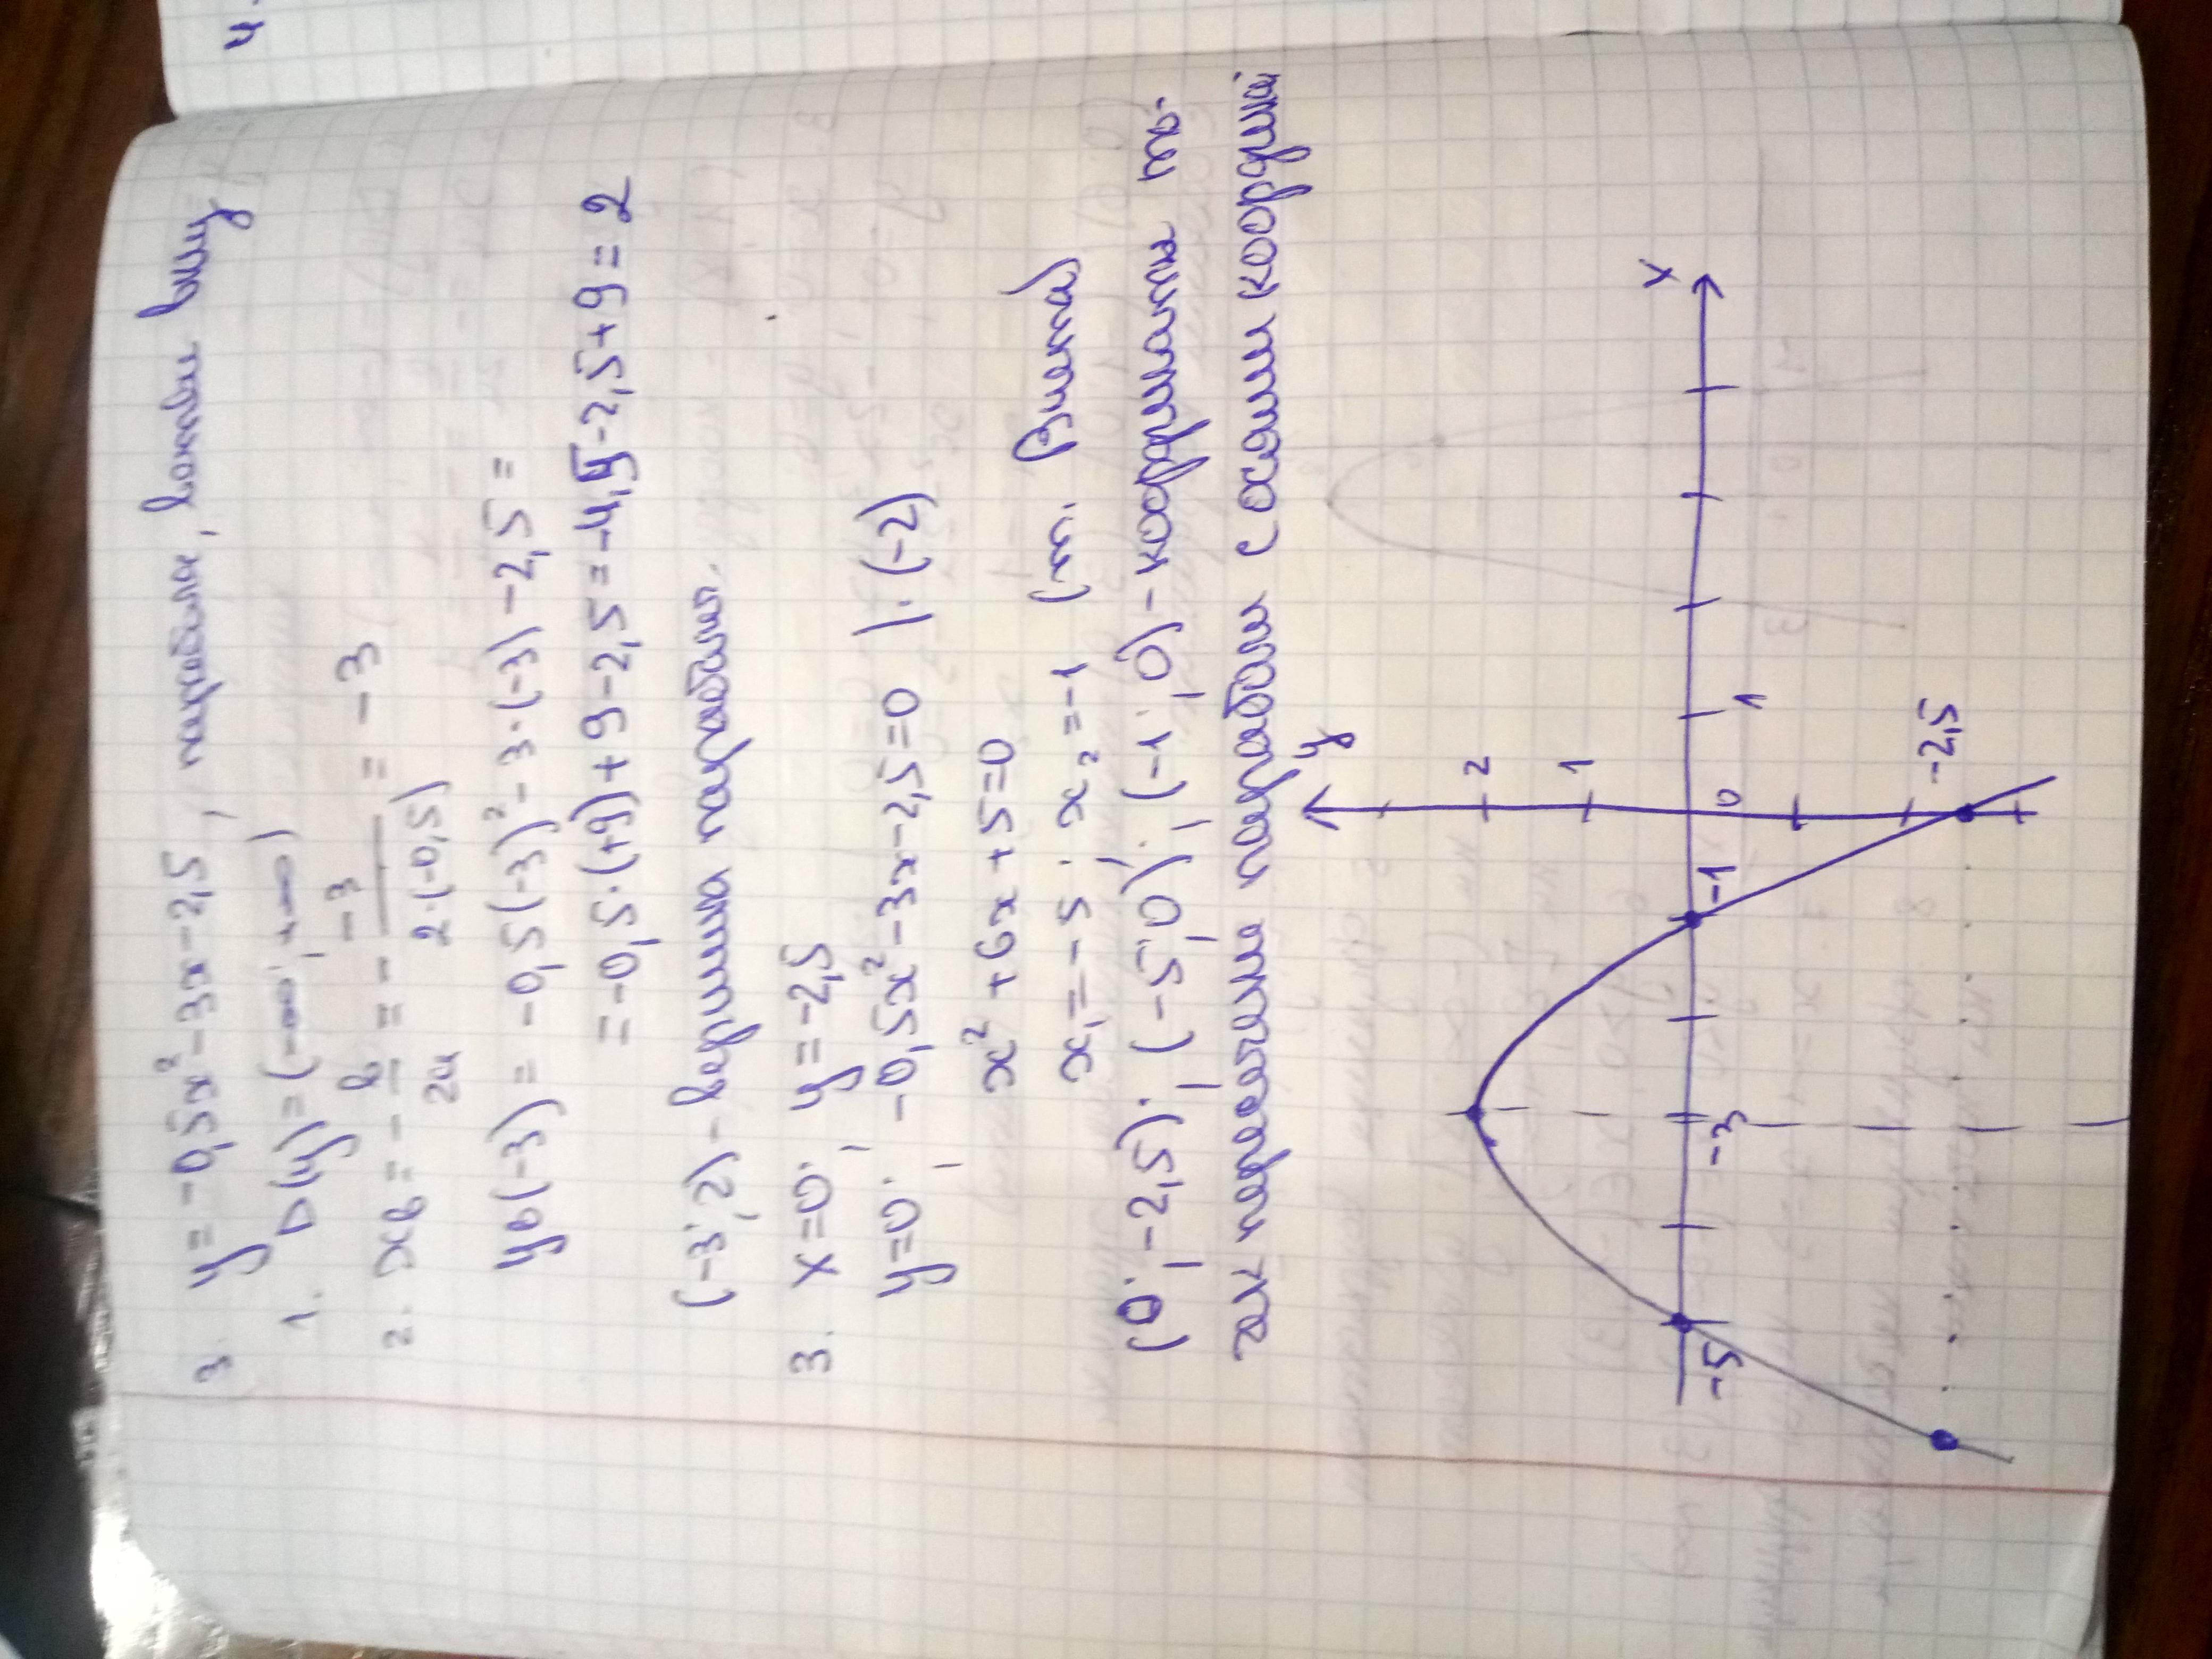 3. y = -0,5x² - 3x - 2,5, парабола, ветви вниз
1. D(y) = (-∞; +∞)
2. xв = - в/2а = - -3/2·(-0,5) = -3
yв(-3) = -0,5(-3)² - 3·(-3) - 2,5 =
= -0,5·(+9) + 9 - 2,5 = -4,5 - 2,5 + 9 = 2
(-3; 2) - вершина параболы.
3. x = 0; y = -2,5
y = 0; -0,5x² - 3x - 2,5 = 0 |·(-2)
x² + 6x + 5 = 0
x₁ = -5; x₂ = -1 (т. Виета)
(0; -2,5); (-5; 0); (-1; 0) - координаты то-
чек пересечения параболы с осями координат
y
x
2
1
0
1
-1
-3
-5
-2,5
4.